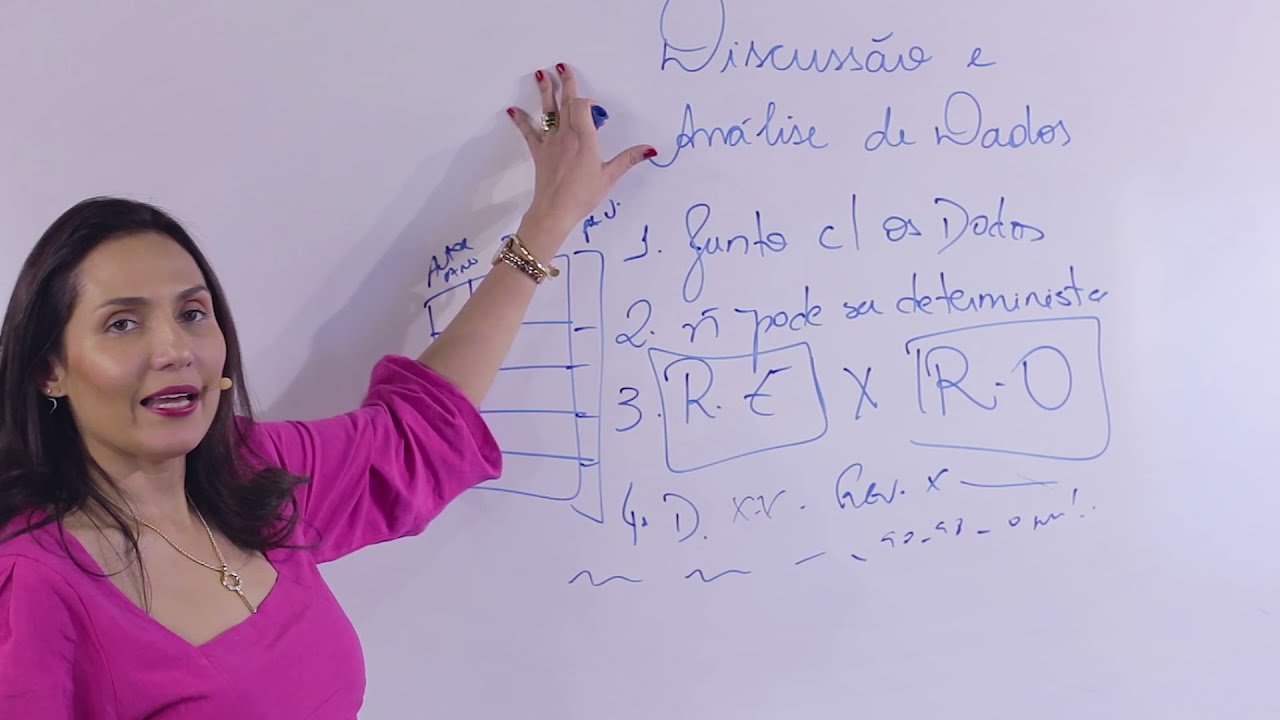 Discussão e
Análise de Dados
Autor
Ano
1. Junto c/ os Dados
2. ñ pode ser determinista
3. R. E X R.O
4. D. x.v. Rev. x